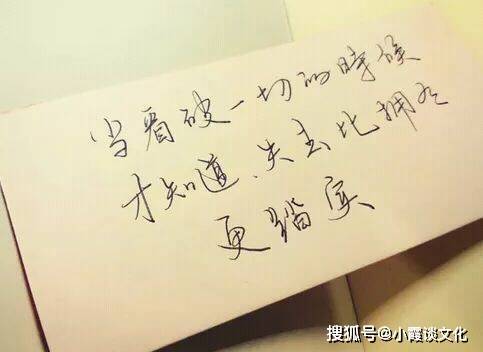 当看破一切的時候
才知道、失去比拥有
更踏实
搜狐号@小霞谈文化